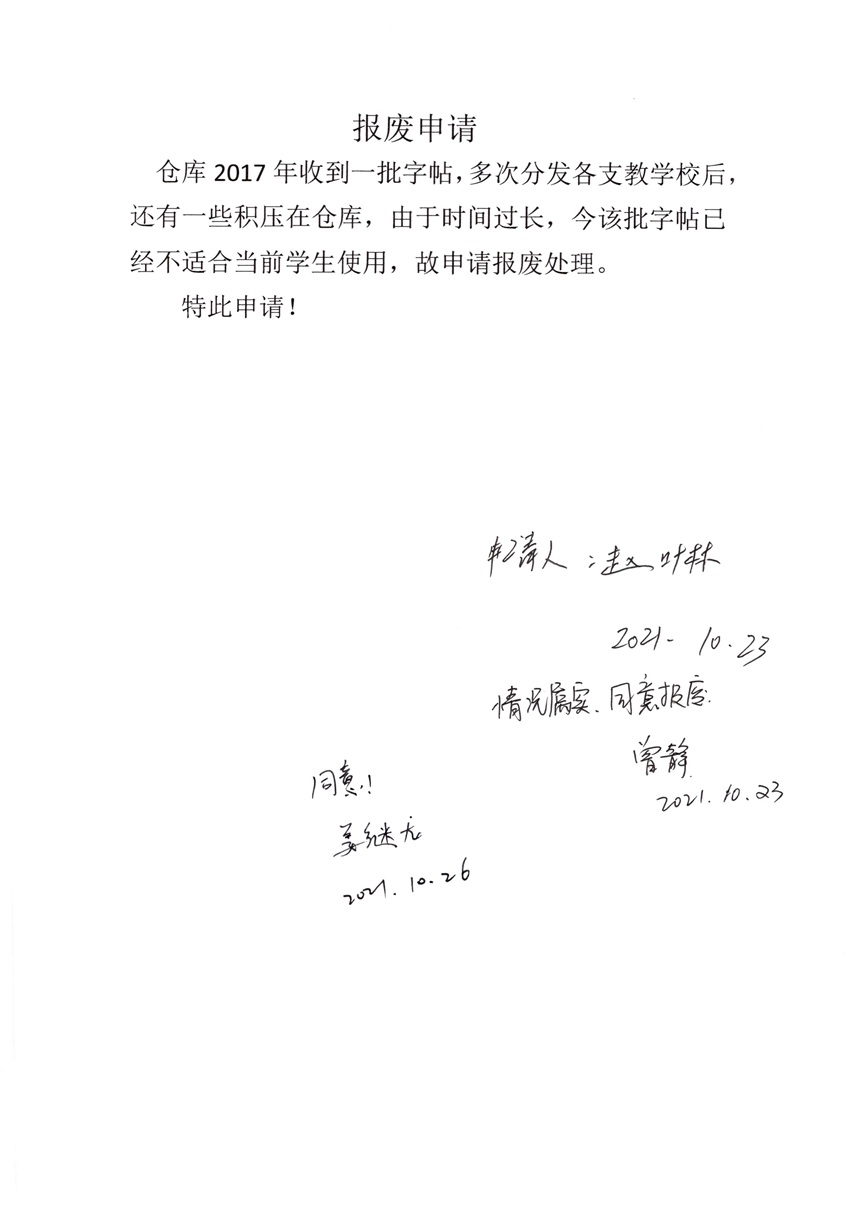 报废申请
仓库 2017 年收到一批字帖，多次分发各支教学校后，
还有一些积压在仓库，由于时间过长，今该批字帖已
经不适合当前学生使用，故申请报废处理。
特此申请！
申请人：赵叶林
2021- 10.23
情况属实、同意报废.
曾静
2021.10.23
同意！
姜继
2021.10.26